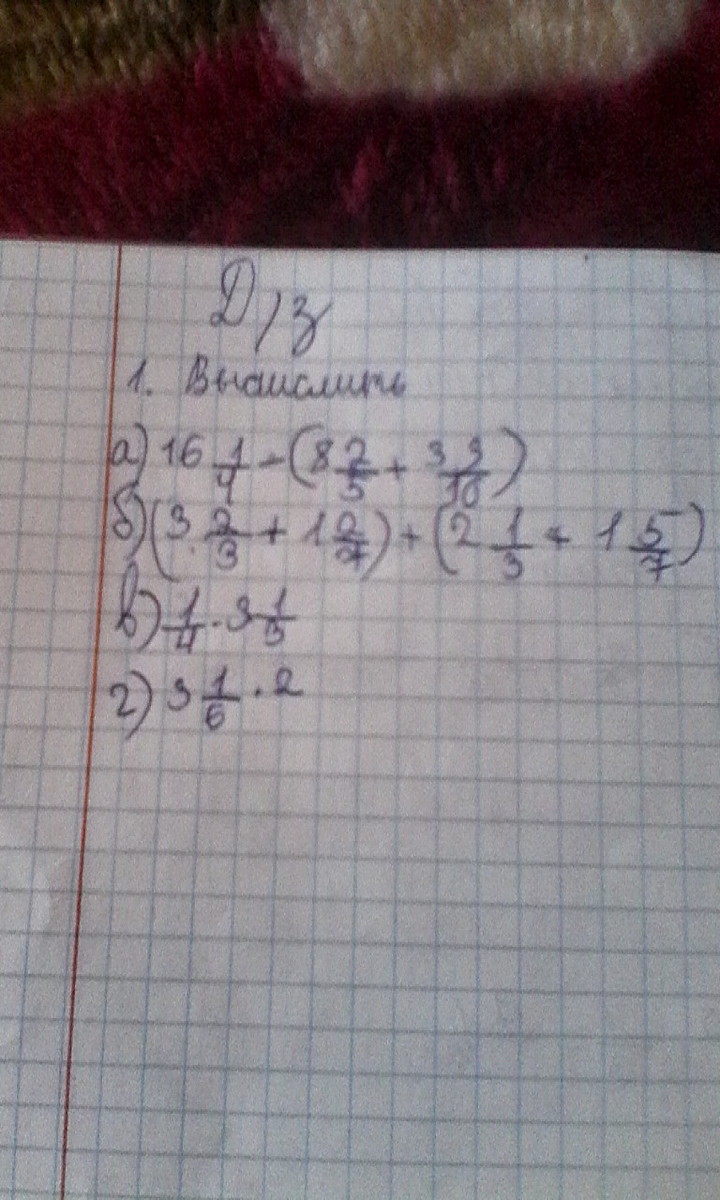 Д/з
1. Вычислить
а) 16 1/4 - (8 2/5 + 3 3/10)
б) (3 2/3 + 1 2/7) + (2 1/3 + 1 5/7)
в) 1/4 · 3 1/3
г) 3 1/6 · 2